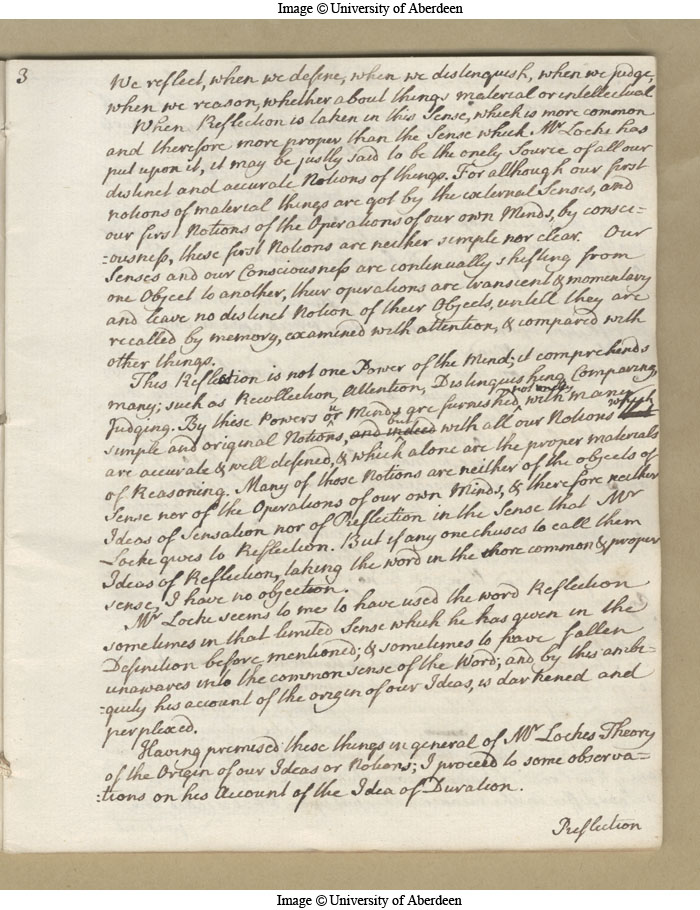 Image © University of Aberdeen
3
We reflect, when we define, when we distinguish, when we judge,
when we reason, whether about things material or intellectual
When Reflection is taken in this Sense, which is more common
and therefore more proper than the Sense which Mr Locke has
put upon it, it may be justly said to be the onely Source of all our
distinct and accurate Notions of things. For although our first
notions of material things are got by the external Senses, and
our first Notions of the Operations of our own Minds, by consci=
=ousness, these first Notions are neither simple nor clear. Our
Senses and our Consciousness are continually shifting from
one Object to another, their operations are transcient & momentary
and leave no distinct Notion of their Objects, untill they are
recalled by memory, examined with attention, & compared with
other things.
This Reflection is not one Power of the Mind; it comprehends
many; such as Recollection, Attention, Distinguishing, Comparing,
Judging. By these Powers our Minds are furnished not only with many
simple and original Notions, and indeed but with all our Notions which
are accurate & well defined, & which alone are the proper materials
of Reasoning. Many of those Notions are neither of the objects of
Sense nor of the Operations of our own Minds, & therefore neither
Ideas of Sensation nor of Reflection in the Sense that Mr
Locke gives to Reflection. But if any one chuses to call them
Ideas of Reflection, taking the word in the more common & proper
sense, I have no objection.
Mr Locke seems to me to have used the word Reflection
sometimes in that limited Sense which he has given in the
Definition before mentioned; & sometimes to have fallen
unawares into the common sense of the Word; and by this ambi=
=guity his account of the origin of our Ideas, is darkened and
perplexed.
Having premised these things in general of Mr Lockes Theory
of the Origin of our Ideas or Notions; I proceed to some observa=
=tions on his Account of the Idea of Duration.
Reflection
Image © University of Aberdeen